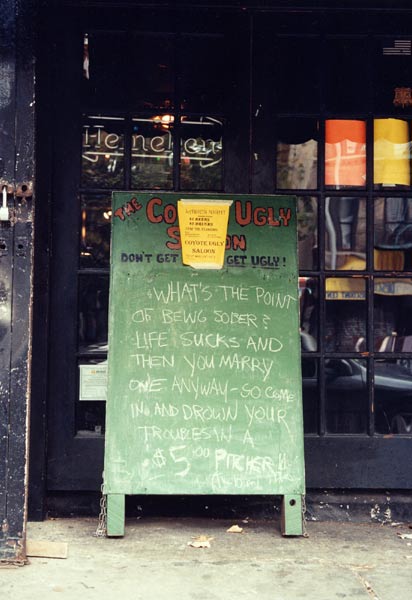 Heineken
THE CO UGLY
S ON
DON'T GET GET UGLY!
COYOTE UGLY
SALOON
"WHAT'S THE POINT
OF BEING SOBER?
LIFE SUCKS AND
THEN YOU MARRY
ONE ANYWAY - SO COME
IN AND DROWN YOUR
TROUBLES IN A
$5.00 PITCHER